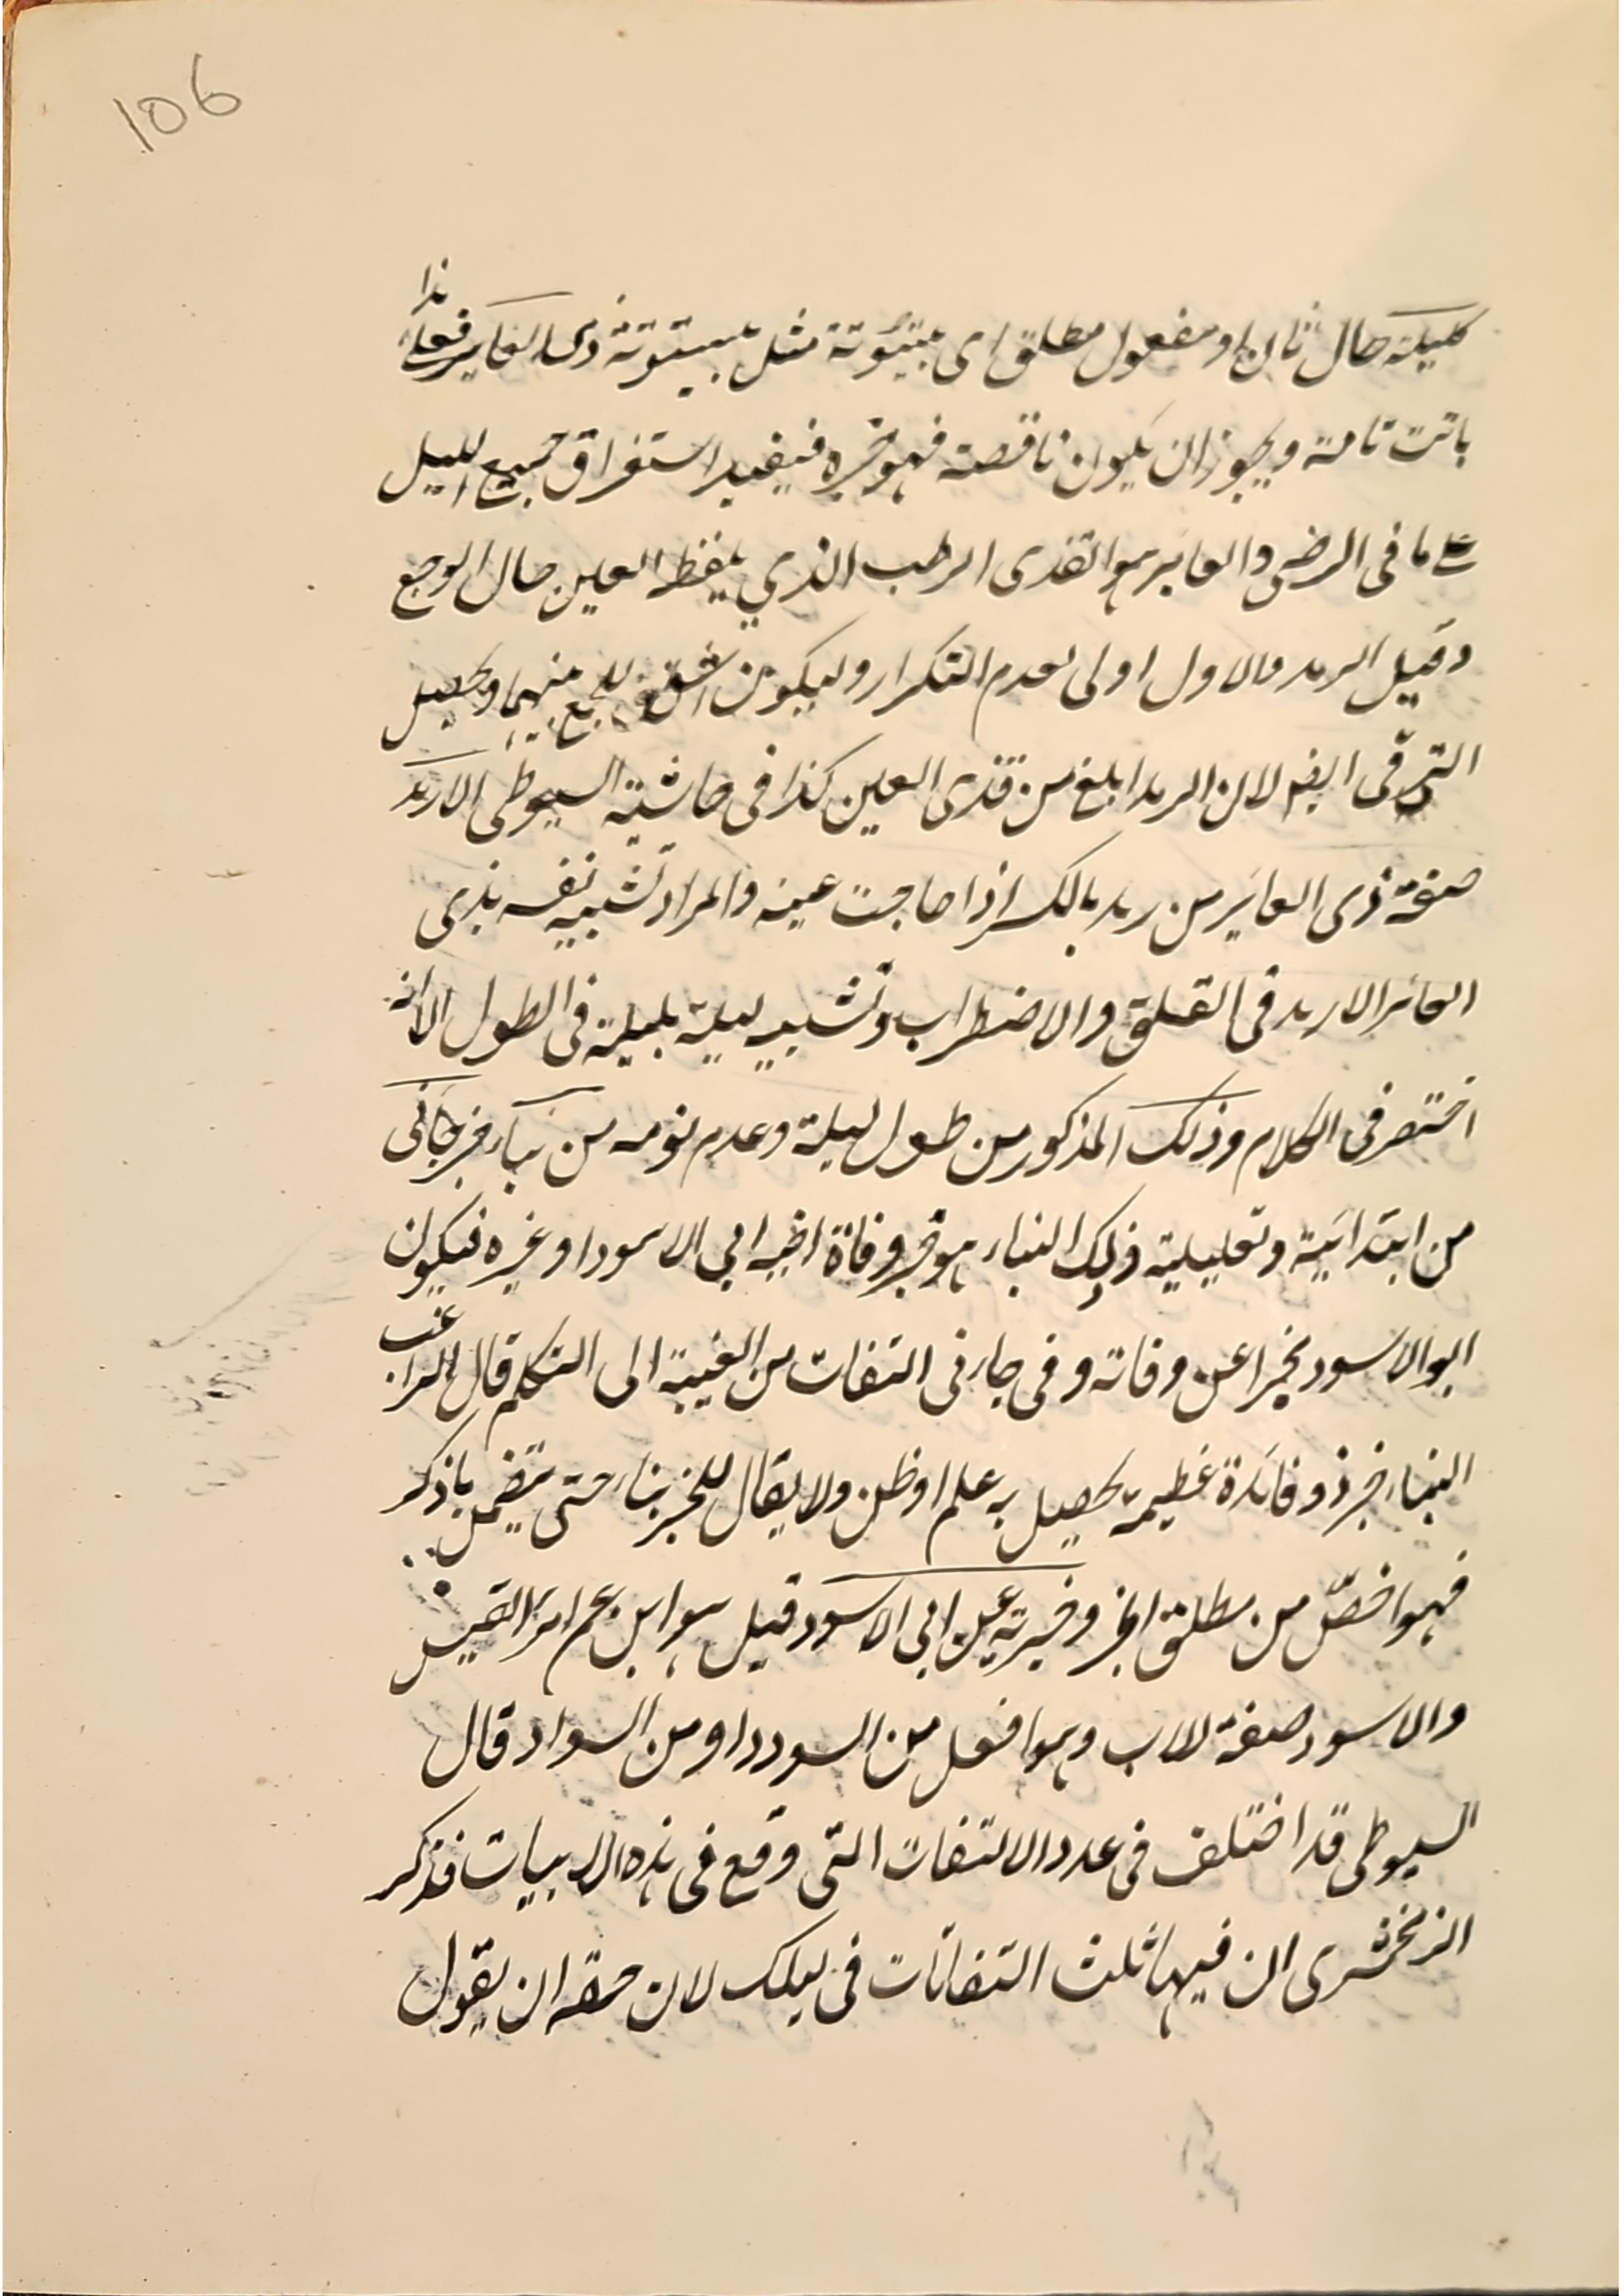 106
كليلة حال ثان او مفعول مطلق اى بيتوتة مثل بيتوتة ذى العائر فعلى هذا
باتت تامة ويجوز ان يكون ناقصة فهو خبره فيفيد استغراق جميع الليل
على ما فى الرضى والعائر هو القذى الرطب الذي يلفظه العين حال الوجع
وقيل الرمد والاول اولى لعدم التكرار وليكون اشق للجمع بينهما ويحصل
الترقى ايضا لان الرمد ابلغ من قذى العين كذا فى حاشية السيوطى الارمد
صفة ذى العائر من رمد بالكسر اذا هاجت عينه والمراد تشبيه نفسه بذى
العائر الارمد فى القلق والاضطراب وتشبيه ليلته بليلته فى الطول الا انه
اختصر فى الكلام وذلك المذكور من طول ليلة وعدم نومه من نباء خبر جاءنى
من ابتدائية وتعليلية ذلك النباء هو خبر وفاة اخيه ابي الاسود او غيره فيكون
ابو الاسود مخبرا عن وفاته وفى جاءنى التفات من الغيبة الى التكلم قال الراغب
النباء خبر ذو فائدة عظيمة يحصل به علم او ظن ولا يقال للخبر نباء حتى يتضمن ما ذكر
فهو اخصّ من مطلق الخبر وخبرته عن ابى الاسود قيل هو ابن عم امرء القيس
والاسود صفة للاب وهو افعل من السودد او من السواد قال
السيوطى قد اختلف فى عدد الالتفات التى وقع فى هذه الابيات فذكر
الزمخشرى ان فيها ثلث التفاتات فى ليلك لان حقه ان يقول